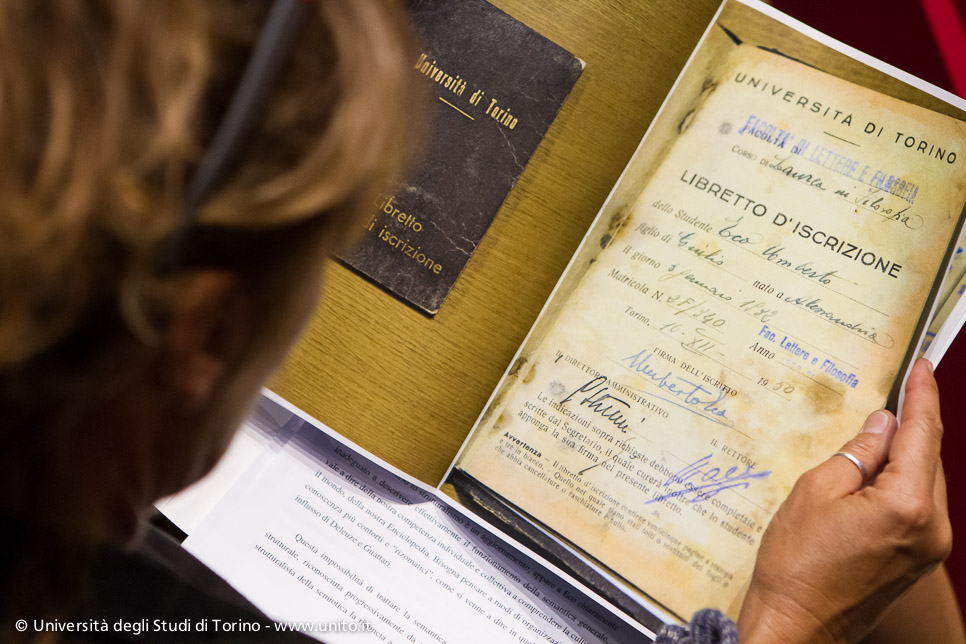 Università di Torino
Libretto
di iscrizione
UNIVERSITÀ DI TORINO
FACOLTÀ DI
FACOLTA' DI LETTERE E FILOSOFIA
CORSO DI Laurea in Filosofia
LIBRETTO D'ISCRIZIONE
dello Studente Eco Umberto
figlio di Giulio nato a Alessandria
il giorno 5 gennaio 1932
Matricola N. Fac. Lettere e Filosofia
Torino, 10 XII Anno 1950
FIRMA DELL'ISCRITTO
Umberto Eco
IL DIRETTORE AMMINISTRATIVO
IL RETTORE
Le indicazioni sopra richieste debbono essere completate e
scritte dal Segretario, il quale curerà inoltre che lo studente
apponga la sua firma nel presente libretto.
Avvertenza - Il libretto d'iscrizione contiene
e tre in bianco.
che abbia cancellature o raschiature
inadeguato a descrivere effettivamente il funzionamento della semantica generale,
vale a dire della nostra competenza individuale e collettiva a comprendere la cultura,
il mondo, della nostra Enciclopedia. Bisogna pensare a modi di organizzazione
conoscenza più contorti e "rizomatici", come si venne a dire in quegli
influsso di Deleuze e Guattari.
Questa impossibilità di trattare la semantica
strutturale, riconosciuta progressivamente da
strutturalista della semiotica la
© Università degli Studi di Torino - www.unito.it